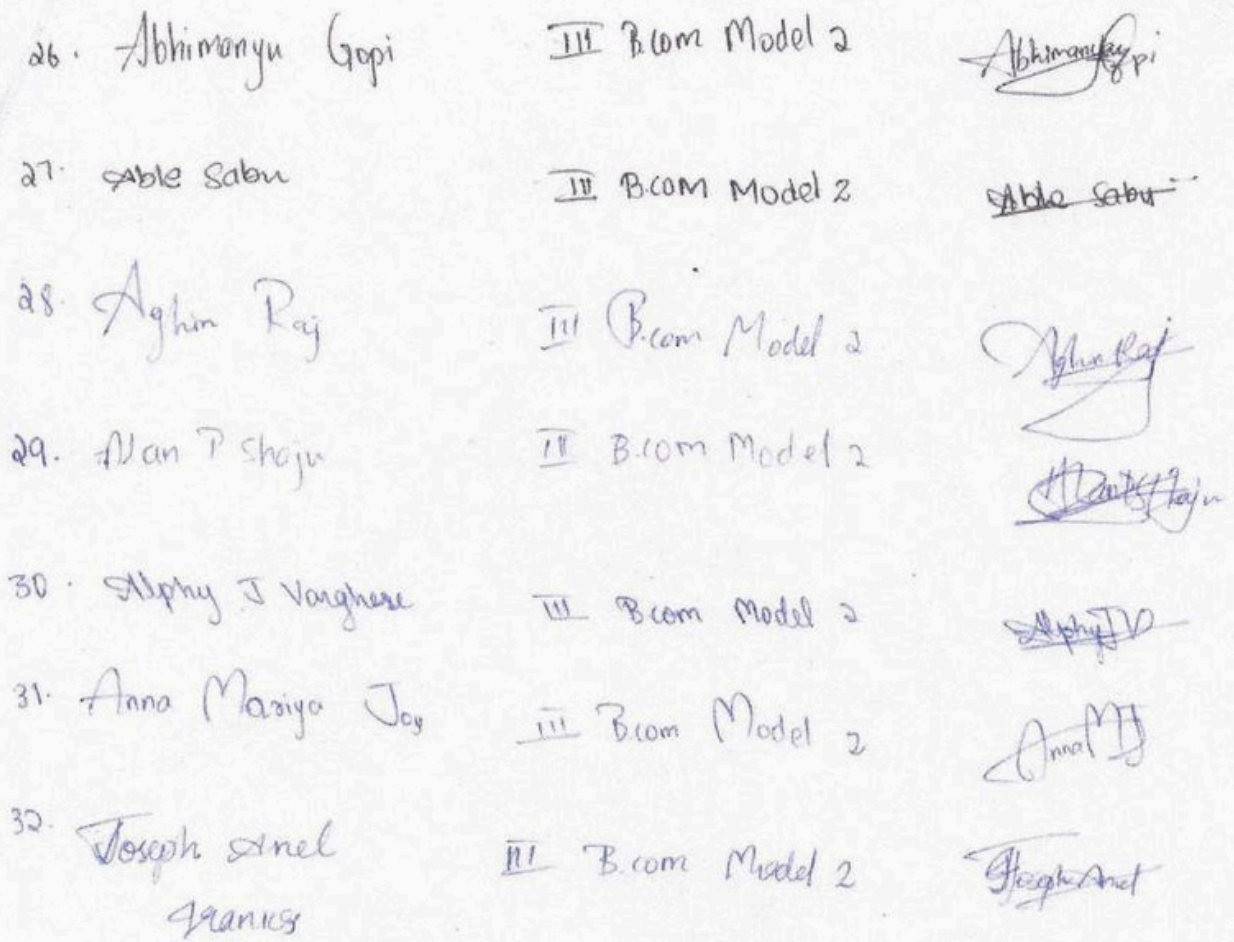 26. Abhimanyu Gopi III B.com Model 2 Abhimanyu Gopi
27. Able Sabu III B.com Model 2 Able Sabu
28. Aghin Raj III B.com Model 2 Aghin Raj
29. Alan P Shaju III B.com Model 2 Alan P Shaju
30. Alphy J Varghese III B.com Model 2 Alphy J V
31. Anna Mariya Joy III B.com Model 2 Anna M J
32. Joseph Anel III B.com Model 2 Joseph Anel